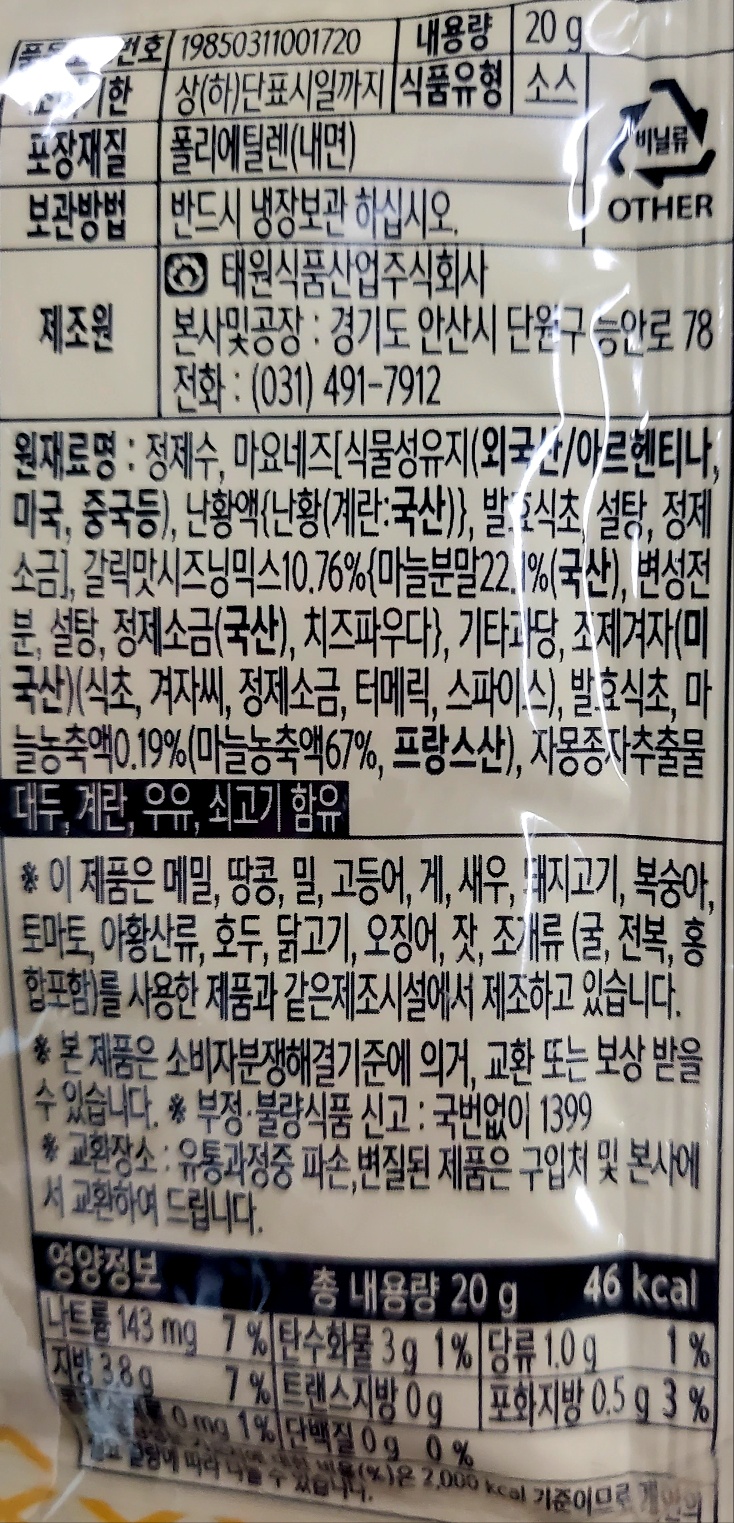 번호 19850311001720 내용량 20 g
기한 상(하)단표시일까지 식품유형 소스
포장재질 폴리에틸렌(내면)
비닐류
보관방법 반드시 냉장보관 하십시오.
OTHER
태원식품산업주식회사
제조원 본사및공장 : 경기도 안산시 단원구 능안로 78
전화 : (031) 491-7912
원재료명 : 정제수, 마요네즈[식물성유지(외국산/아르헨티나,
미국, 중국등), 난황액{난황(계란:국산)}, 발효식초, 설탕, 정제
소금], 갈릭맛시즈닝믹스10.76%{마늘분말22.1%(국산), 변성전
분, 설탕, 정제소금(국산), 치즈파우다}, 기타과당, 조제겨자(미
국산)(식초, 겨자씨, 정제소금, 터메릭, 스파이스), 발효식초, 마
늘농축액0.19%(마늘농축액67%, 프랑스산), 자몽종자추출물
대두, 계란, 우유, 쇠고기 함유
※ 이 제품은 메밀, 땅콩, 밀, 고등어, 게, 새우, 돼지고기, 복숭아,
토마토, 아황산류, 호두, 닭고기, 오징어, 잣, 조개류 (굴, 전복, 홍
합포함)를 사용한 제품과 같은제조시설에서 제조하고 있습니다.
※ 본 제품은 소비자분쟁해결기준에 의거, 교환 또는 보상 받을
수 있습니다. ※ 부정·불량식품 신고 : 국번없이 1399
※ 교환장소 : 유통과정중 파손,변질된 제품은 구입처 및 본사에
서 교환하여 드립니다.
영양정보 총 내용량 20 g 46 kcal
나트륨 143 mg 7 % 탄수화물 3 g 1 % 당류 1.0 g 1 %
지방 3.8 g 7 % 트랜스지방 0 g 포화지방 0.5 g 3 %
0 mg 1 % 단백질 0 g 0 %
비율(%)은 2,000 kcal 기준이므로 개인의
따라 다를 수 있습니다.